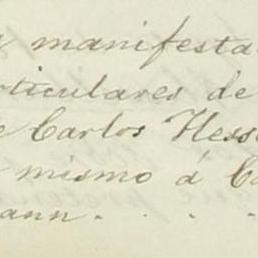 manifesta
rticulares de
e Carlos Hess
mismo á Ca
ann . . . .